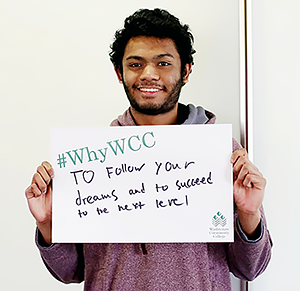 #WhyWCC
TO Follow your
dreams and to succeed
to the next level
Washtenaw
Community
College